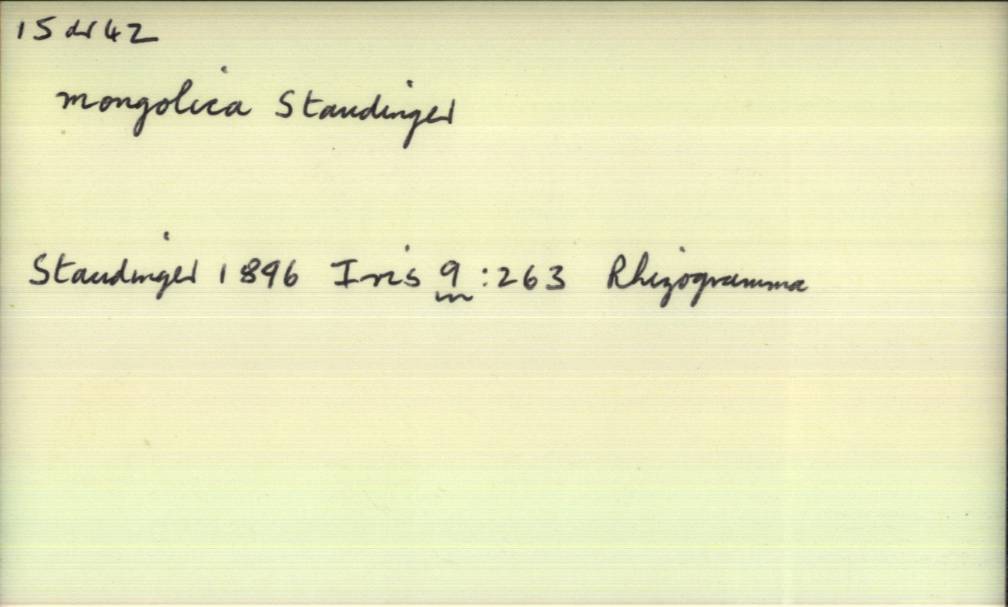 15 dr 42
mongolica Staudinger
Staudinger 1896 Iris 9 : 263 Rhizogramma